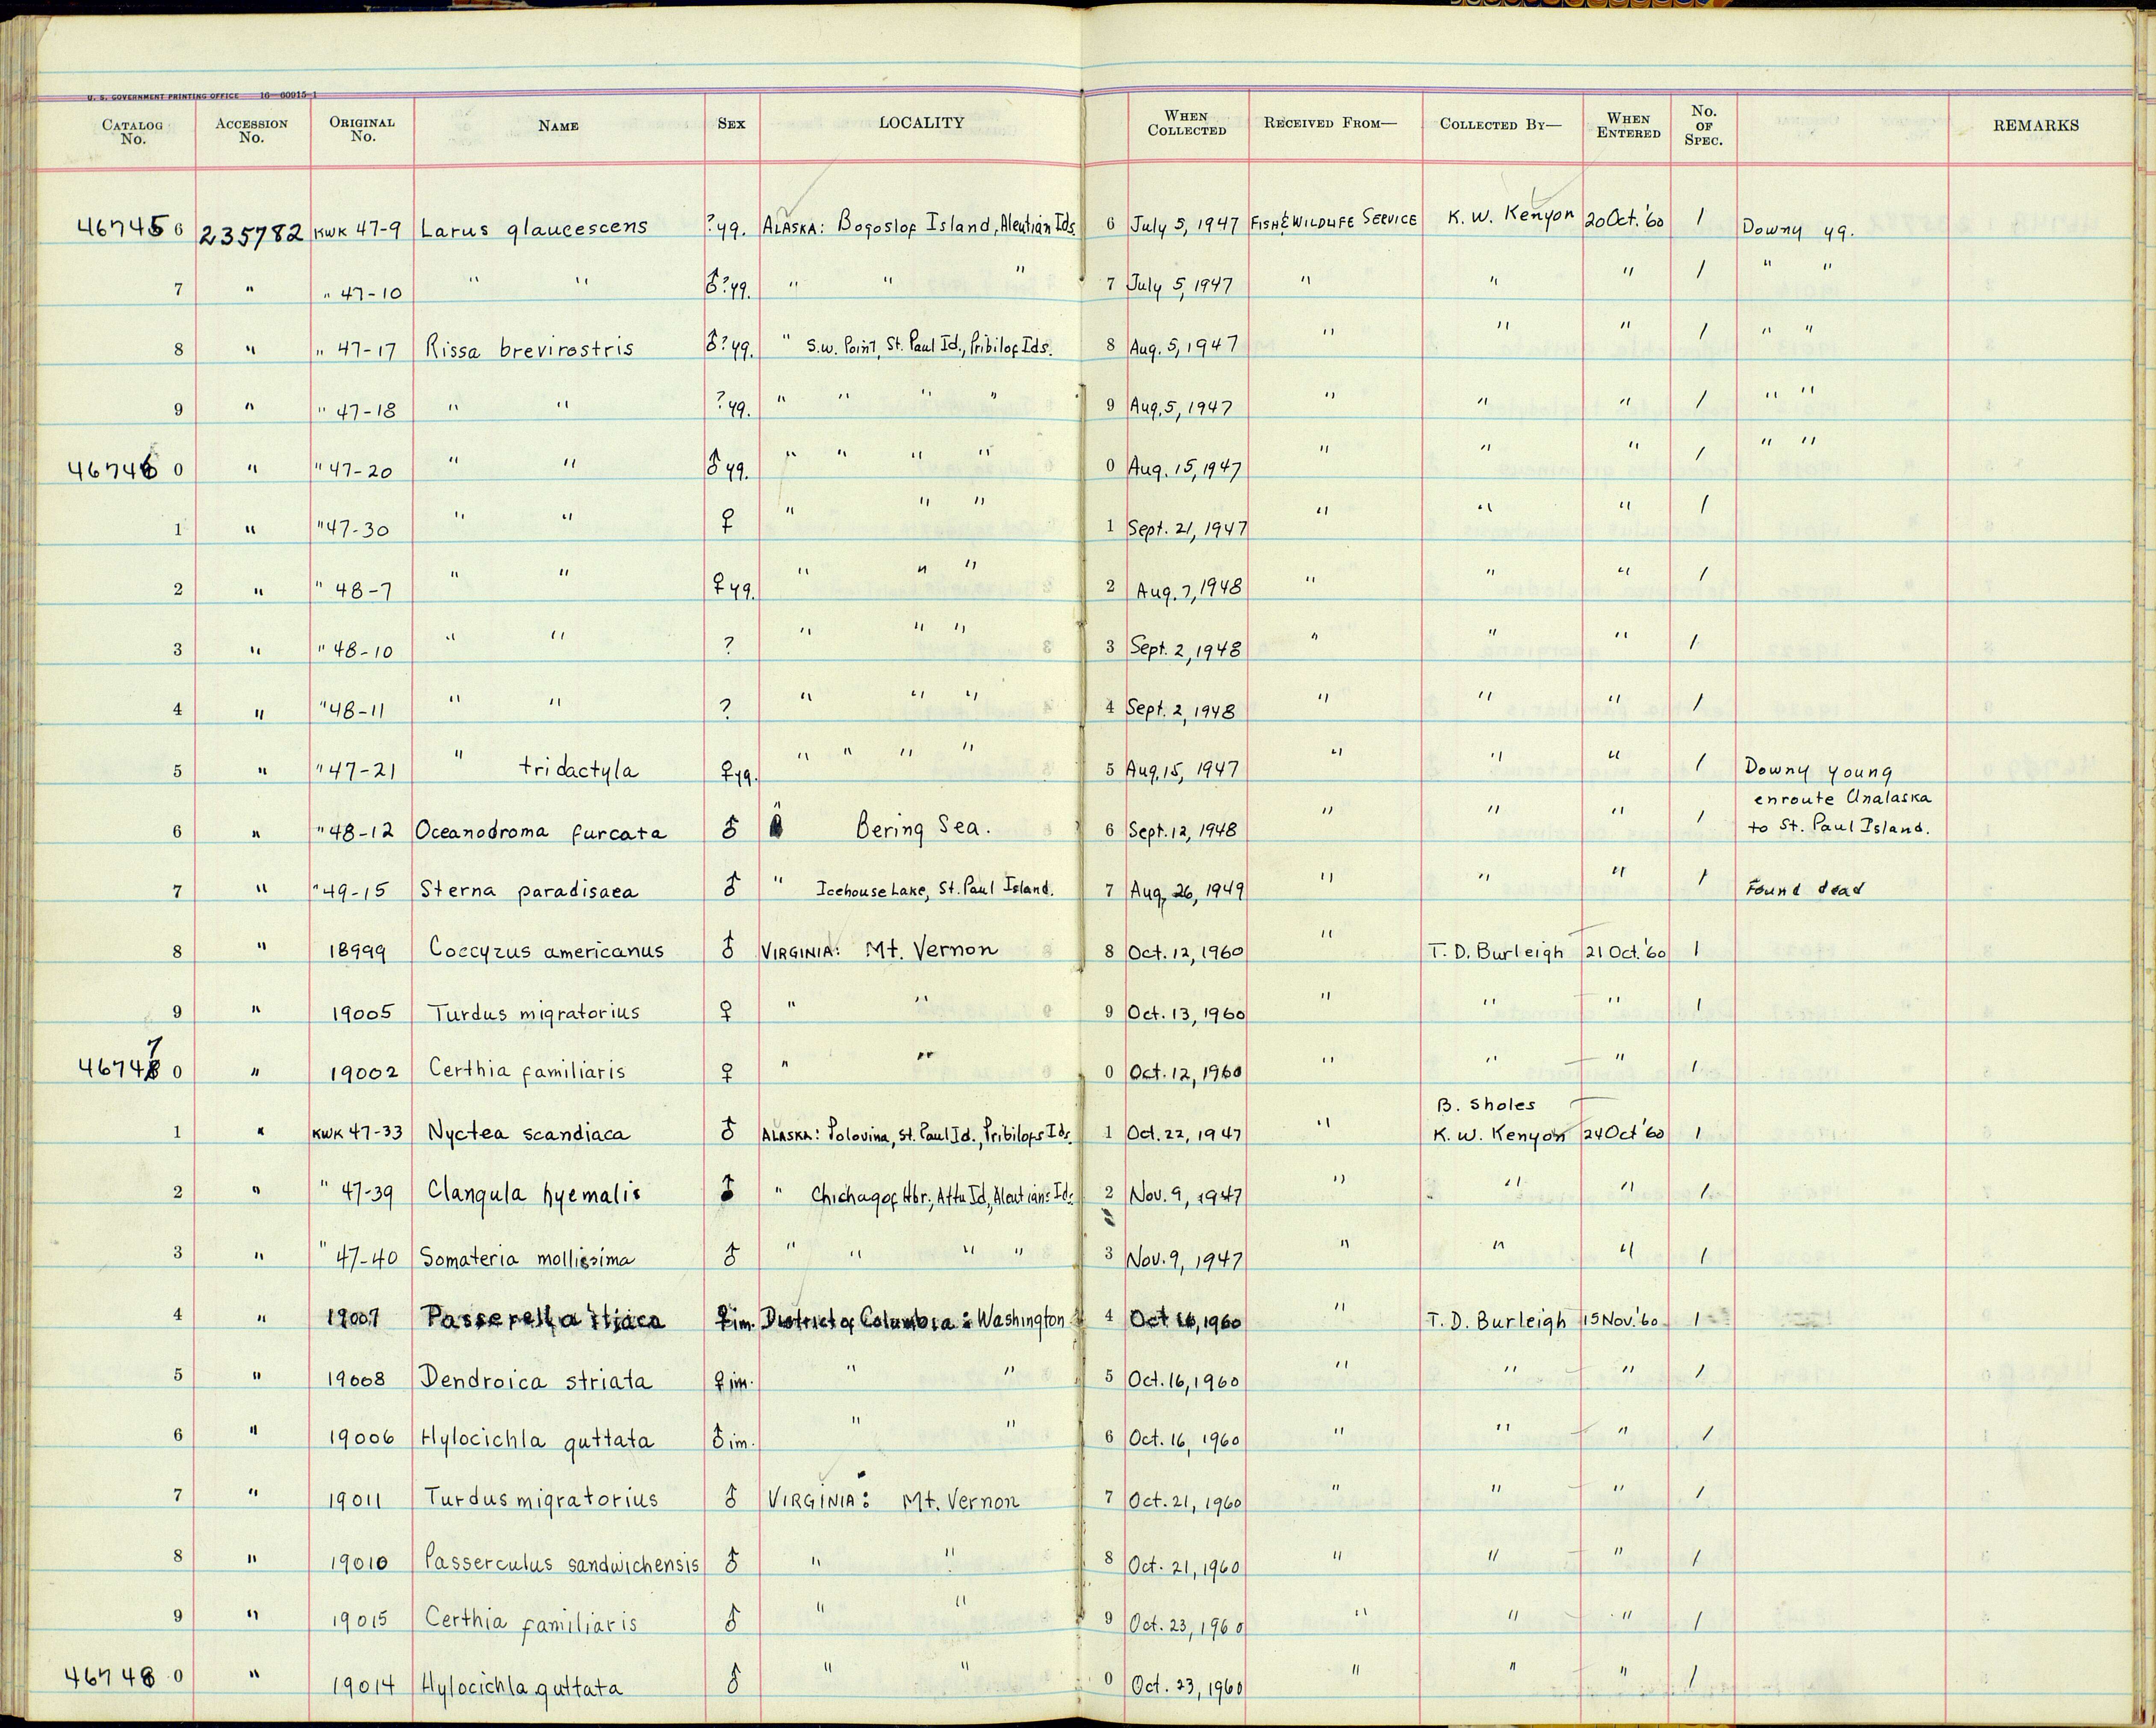 U. S. GOVERNMENT PRINTING OFFICE 16—60915-1
CATALOG No. ACCESSION No. ORIGINAL No. NAME SEX LOCALITY WHEN COLLECTED RECEIVED FROM— COLLECTED BY— WHEN ENTERED No. OF SPEC. REMARKS
467456 235782 KWK 47-9 Larus glaucescens ?yg. ALASKA: Bogoslof Island, Aleutian Ids. 6 July 5, 1947 FISH & WILDLIFE SERVICE K. W. Kenyon 20 Oct. '60 1 Downy yg.
7 " " 47-10 " " ♂?yg. " " " 7 July 5, 1947 " " " 1 " "
8 " " 47-17 Rissa brevirostris ♂?yg. " S.W. Point, St. Paul Id., Pribilof Ids. 8 Aug. 5, 1947 " " " 1 " "
9 " " 47-18 " " ?yg. " " " " 9 Aug. 5, 1947 " " " 1 " "
467460 " " 47-20 " " ♂ yg. " " " " 0 Aug. 15, 1947 " " " 1 " "
1 " " 47-30 " " ♀ " " " 1 Sept. 21, 1947 " " " 1
2 " " 48-7 " " ♀ yg. " " " 2 Aug. 7, 1948 " " " 1
3 " " 48-10 " " ? " " " 3 Sept. 2, 1948 " " " 1
4 " " 48-11 " " ? " " " 4 Sept. 2, 1948 " " " 1
5 " " 47-21 " tridactyla ♀ yg. " " " " 5 Aug. 15, 1947 " " " 1 Downy young
6 " " 48-12 Oceanodroma furcata ♂ " Bering Sea. 6 Sept. 12, 1948 " " " 1 enroute Unalaska
to St. Paul Island.
7 " " 49-15 Sterna paradisaea ♂ " Icehouse Lake, St. Paul Island. 7 Aug. 26, 1949 " " " 1 Found dead
8 " 18999 Coccyzus americanus ♂ VIRGINIA: Mt. Vernon 8 Oct. 12, 1960 " T. D. Burleigh 21 Oct. '60 1
9 " 19005 Turdus migratorius ♀ " " 9 Oct. 13, 1960 " " " 1
467470 " 19002 Certhia familiaris ♀ " " 0 Oct. 12, 1960 " " " 1
B. Sholes
1 " KWK 47-33 Nyctea scandiaca ♂ ALASKA: Polovina, St. Paul Id., Pribilofs Ids. 1 Oct. 22, 1947 " K. W. Kenyon 24 Oct '60 1
2 " " 47-39 Clangula hyemalis ♂ " Chichagof Hbr., Attu Id., Aleutians Ids. 2 Nov. 9, 1947 " " " 1
3 " " 47-40 Somateria mollissima ♂ " " " " 3 Nov. 9, 1947 " " " 1
4 " 19007 Passerella iliaca ♀ im. District of Columbia: Washington 4 Oct 16, 1960 " T. D. Burleigh 15 Nov. '60 1
5 " 19008 Dendroica striata ♀ im. " " 5 Oct. 16, 1960 " " " 1
6 " 19006 Hylocichla guttata ♂ im. " " 6 Oct. 16, 1960 " " " 1
7 " 19011 Turdus migratorius ♂ VIRGINIA: Mt. Vernon 7 Oct. 21, 1960 " " " 1
8 " 19010 Passerculus sandwichensis ♂ " " 8 Oct. 21, 1960 " " " 1
9 " 19015 Certhia familiaris ♂ " " 9 Oct. 23, 1960 " " " 1
467480 " 19014 Hylocichla guttata ♂ " " 0 Oct. 23, 1960 " " " 1